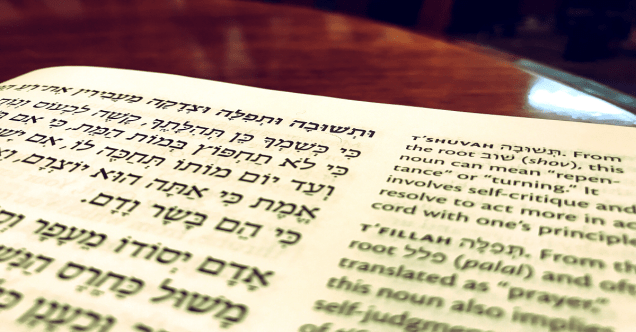 וּתְשׁוּבָה וּתְפִלָּה וּצְדָקָה מַעֲבִירִין אֶת רֹעַ
כִּי כְּשִׁמְךָ כֵּן תְּהִלָּתֶךָ, קָשֶׁה לִכְעוֹס
כִּי לֹא תַחְפּוֹץ בְּמוֹת הַמֵּת, כִּי אִם
וְעַד יוֹם מוֹתוֹ תְּחַכֶּה לוֹ, אִם
אֱמֶת כִּי אַתָּה הוּא יוֹצְרָם,
כִּי הֵם בָּשָׂר וָדָם.
אָדָם יְסוֹדוֹ מֵעָפָר
מָשׁוּל כְּחֶרֶס
T’SHUVAH תְּשׁוּבָה. From
the root שׁוּב (shov), this
noun can mean “repen-
tance” or “turning.” It
involves self-critique and
resolve to act more in ac
cord with one’s principle
T’FILLAH תְּפִלָּה. From
root פלל (palal) and of
translated as “prayer,”
this noun also implie
self-judgm